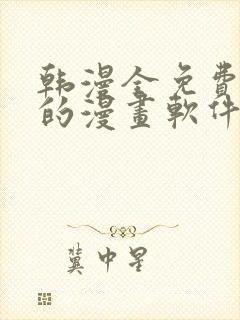 韩漫全免费
的漫畫軟件
冀中星